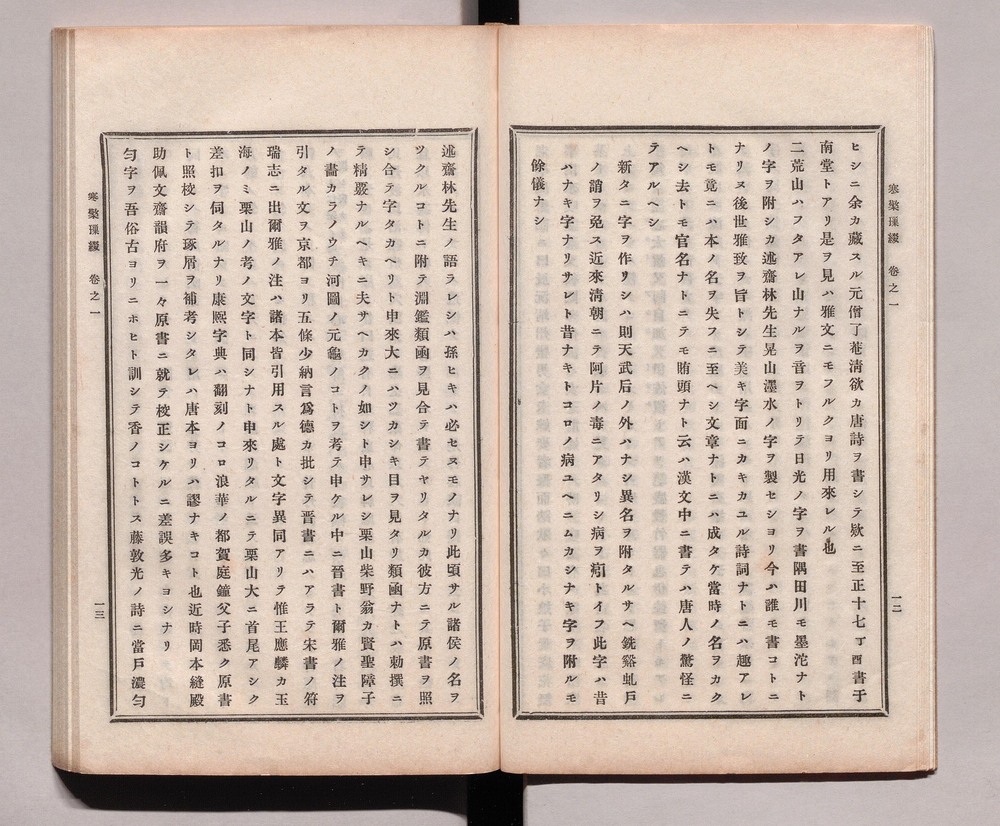 寒檠璅綴 卷之一
一二
ヒシニ余カ藏スル元僧了菴淸欲カ唐詩ヲ書シテ欵ニ至正十七丁酉書于
南堂トアリ是ヲ見ハ雅文ニモフルクヨリ用來レル也
二荒山ハフタアレ山ナルヲ音ヲトリテ日光ノ字ヲ書隅田川モ墨沱ナト
ノ字ヲ附シカ述齋林先生晃山濹水ノ字ヲ製セシヨリ今ハ誰モ書コトニ
ナリヌ後世雅致ヲ旨トシテ美キ字面ニカキカユル詩詞ナトニハ趣アレ
トモ竟ニハ本ノ名ヲ失フニ至ヘシ文章ナトニハ成タケ當時ノ名ヲカク
ヘシ去トモ官名ナトニテモ賄頭ナト云ハ漢文中ニ書テハ唐人ノ驚怪ニ
テアルヘシ
新タニ字ヲ作リシハ則天武后ノ外ハナシ異名ヲ附タルサヘ銑谿虬戶
ノ謂ヲ免ス近來淸朝ニテ阿片ノ毒ニアタリシ病ヲトイフ此字ハ昔
ハナキ字ナリサレト昔ナキトコロノ病ユヘニムカシナキ字ヲ附ルモ
餘儀ナシ
述齋林先生ノ語ラレシハ孫ヒキハ必セスモノナリ此頃サル諸侯ノ名ヲ
ツクルコトニ附テ淵鑑類函ヲ見合テ書テヤリタルカ彼方ニテ原書ヲ照
シ合テ字タカヘリト申來大ニハツカシキ目ヲ見タリ類函ナトハ勅撰ニ
テ精嚴ナルヘキニ夫サヘカクノ如シト申サレシ栗山柴野翁カ賢聖障子
ノ畵カラノウチ河圖ノ元龜ノコトヲ考テ申ケル中ニ晉書ト爾雅ノ注ヲ
引タル文ヲ京都ヨリ五條少納言爲德カ批シテ晉書ニハアラテ宋書ノ符
瑞志ニ出爾雅ノ注ハ諸本皆引用スル處ト文字異同アリテ惟王應麟カ玉
海ノミ栗山ノ考ノ文字ト同シナト申來リタルニテ栗山大ニ首尾アシク
差扣ヲ伺タルナリ康熙字典ハ翻刻ノコロ浪華ノ都賀庭鐘父子悉ク原書
ト照校シテ琢屑ヲ補考シタレハ唐本ヨリハ謬ナキコト也近時岡本縫殿
助佩文齋韻府ヲ一々原書ニ就テ校正シケルニ差誤多キヨシナリ
匂字ヲ吾俗古ヨリニホヒト訓シテ香ノコトトス藤敦光ノ詩ニ當戶濃匂
寒檠璅綴 卷之一
一三